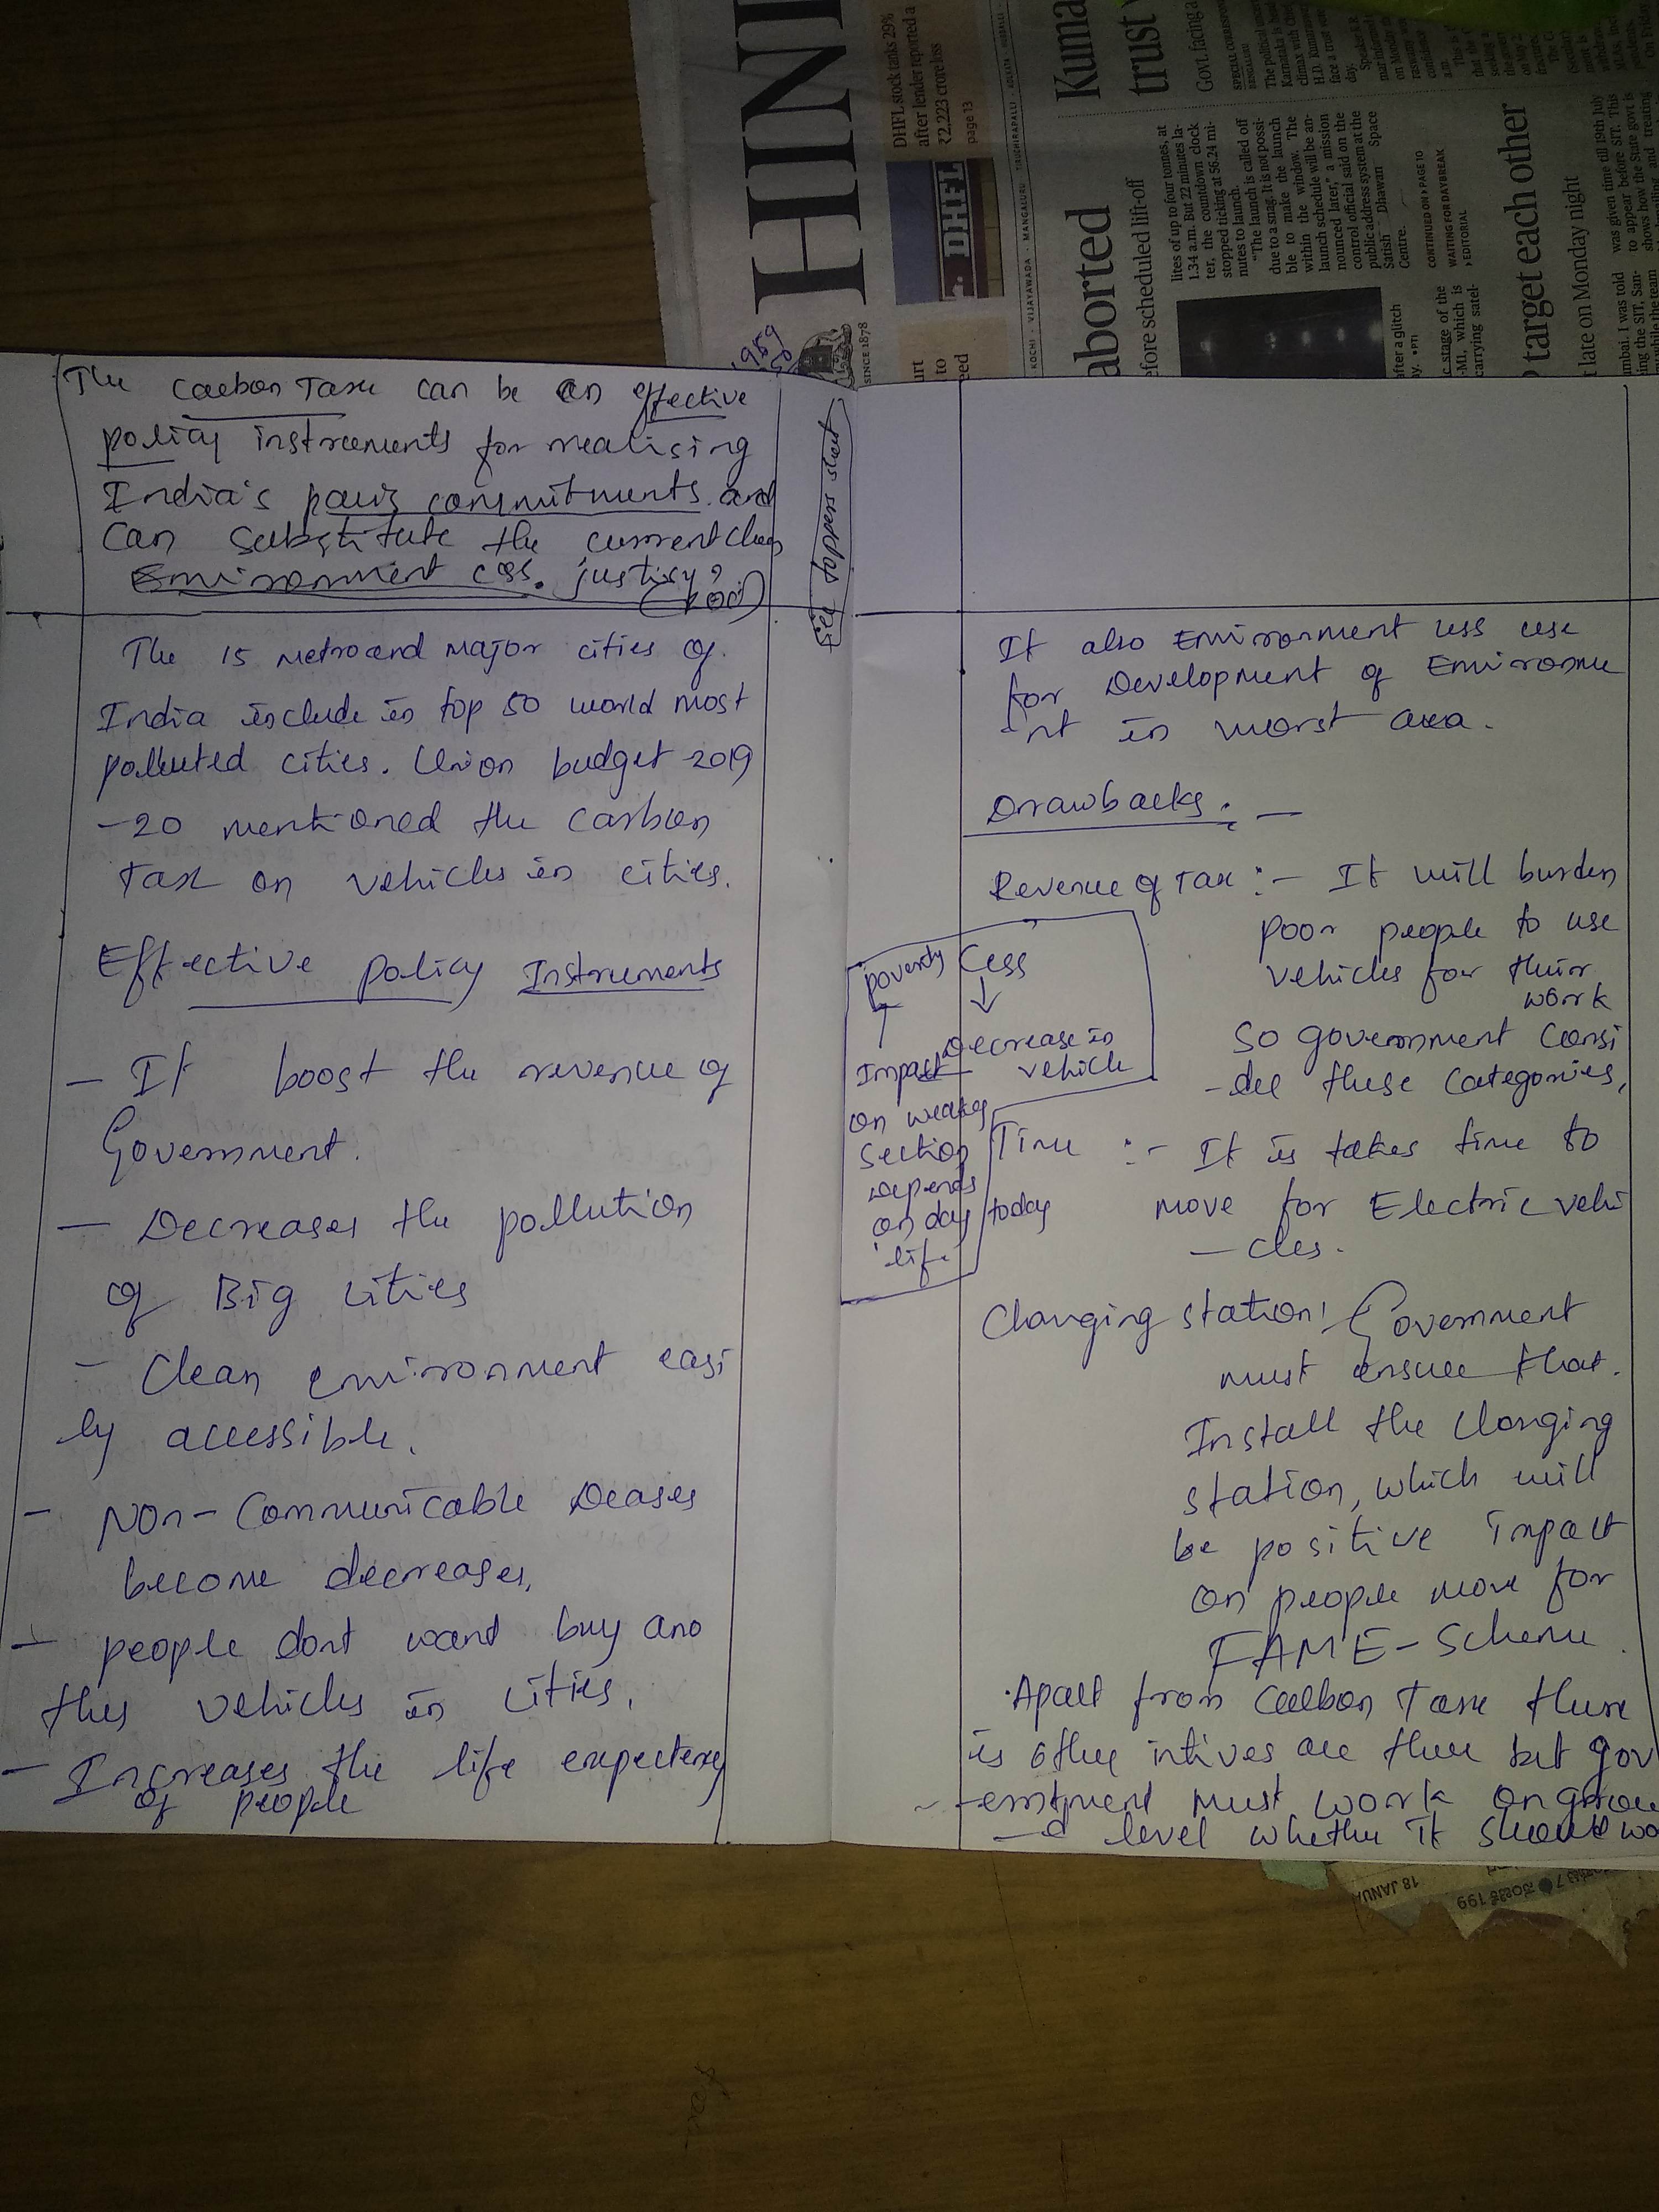 The Carbon Taxe can be an effective
policy instruments for realising
India's paris commitments and
can substitute the current clean
Environment cess. justisy?
The 15 Metro and Major cities of
India include in top 50 world most
polluted cities. Union budget 2019
-20 mentioned the carbon
Tax on vehicles in cities.
Effective policy Instruments
- It boost the revenue of
Government.
- Decreases the pollution
of Big cities
- Clean environment easi
ly accessible.
- Non-Communicable Deases
become decreases,
- people dont want buy ano
ther vehicles in cities.
- Increases the life expectency
of people
toppers
It also Environment cess use
for Development of Environme
-nt in worst area.
Drawbacks :-
Revenue of Tax :- It will burden
poor people to use
vehicles for their
work
so government consi
-der these categories,
poverty Cess
Impact
Decrease in
vehicle
on weaker
section
Depends
on day today
life
Time :- It is takes time to
move for Electric vehi
-cles.
Charging station: Government
must ensure that.
Install the charging
station, which will
be positive impact
on people move for
FAME-Scheme.
Apart from Carbon Taxe there
is other intives are there but gov
-ernment must work on grou
-d level whether it should wo
HIN
SINCE 1878
DHFL stock tanks 29%
after lender reported a
₹2,223 crore loss
page 13
DHFL
KOCHI · VIJAYAWADA · MANGALURU · TIRUCHIRAPALLI · KOLKATA · HUBBALLI
urt
to
eed
aborted
efore scheduled lift-off
lites of up to four tonnes, at
1.34 a.m. But 22 minutes la-
ter, the countdown clock
stopped ticking at 56.24 mi-
nutes to launch.
"The launch is called off
due to a snag. It is not possi-
ble to make the launch
within the window. The
launch schedule will be an-
nounced later," a mission
control official said on the
public address system at the
Satish Dhawan Space
Centre.
CONTINUED ON » PAGE 10
WAITING FOR DAYBREAK
» EDITORIAL
after a glitch
y. • PTI
c stage of the
-M1, which is
carrying satel-
Kuma
trust
Govt. facing a
SPECIAL CORRESPON
BENGALURU
target each other
late on Monday night
was given time till 19th July
to appear before SIT. This
shows how the State govt is
mbai. I was told
ing the SIT, San-
18 JANU